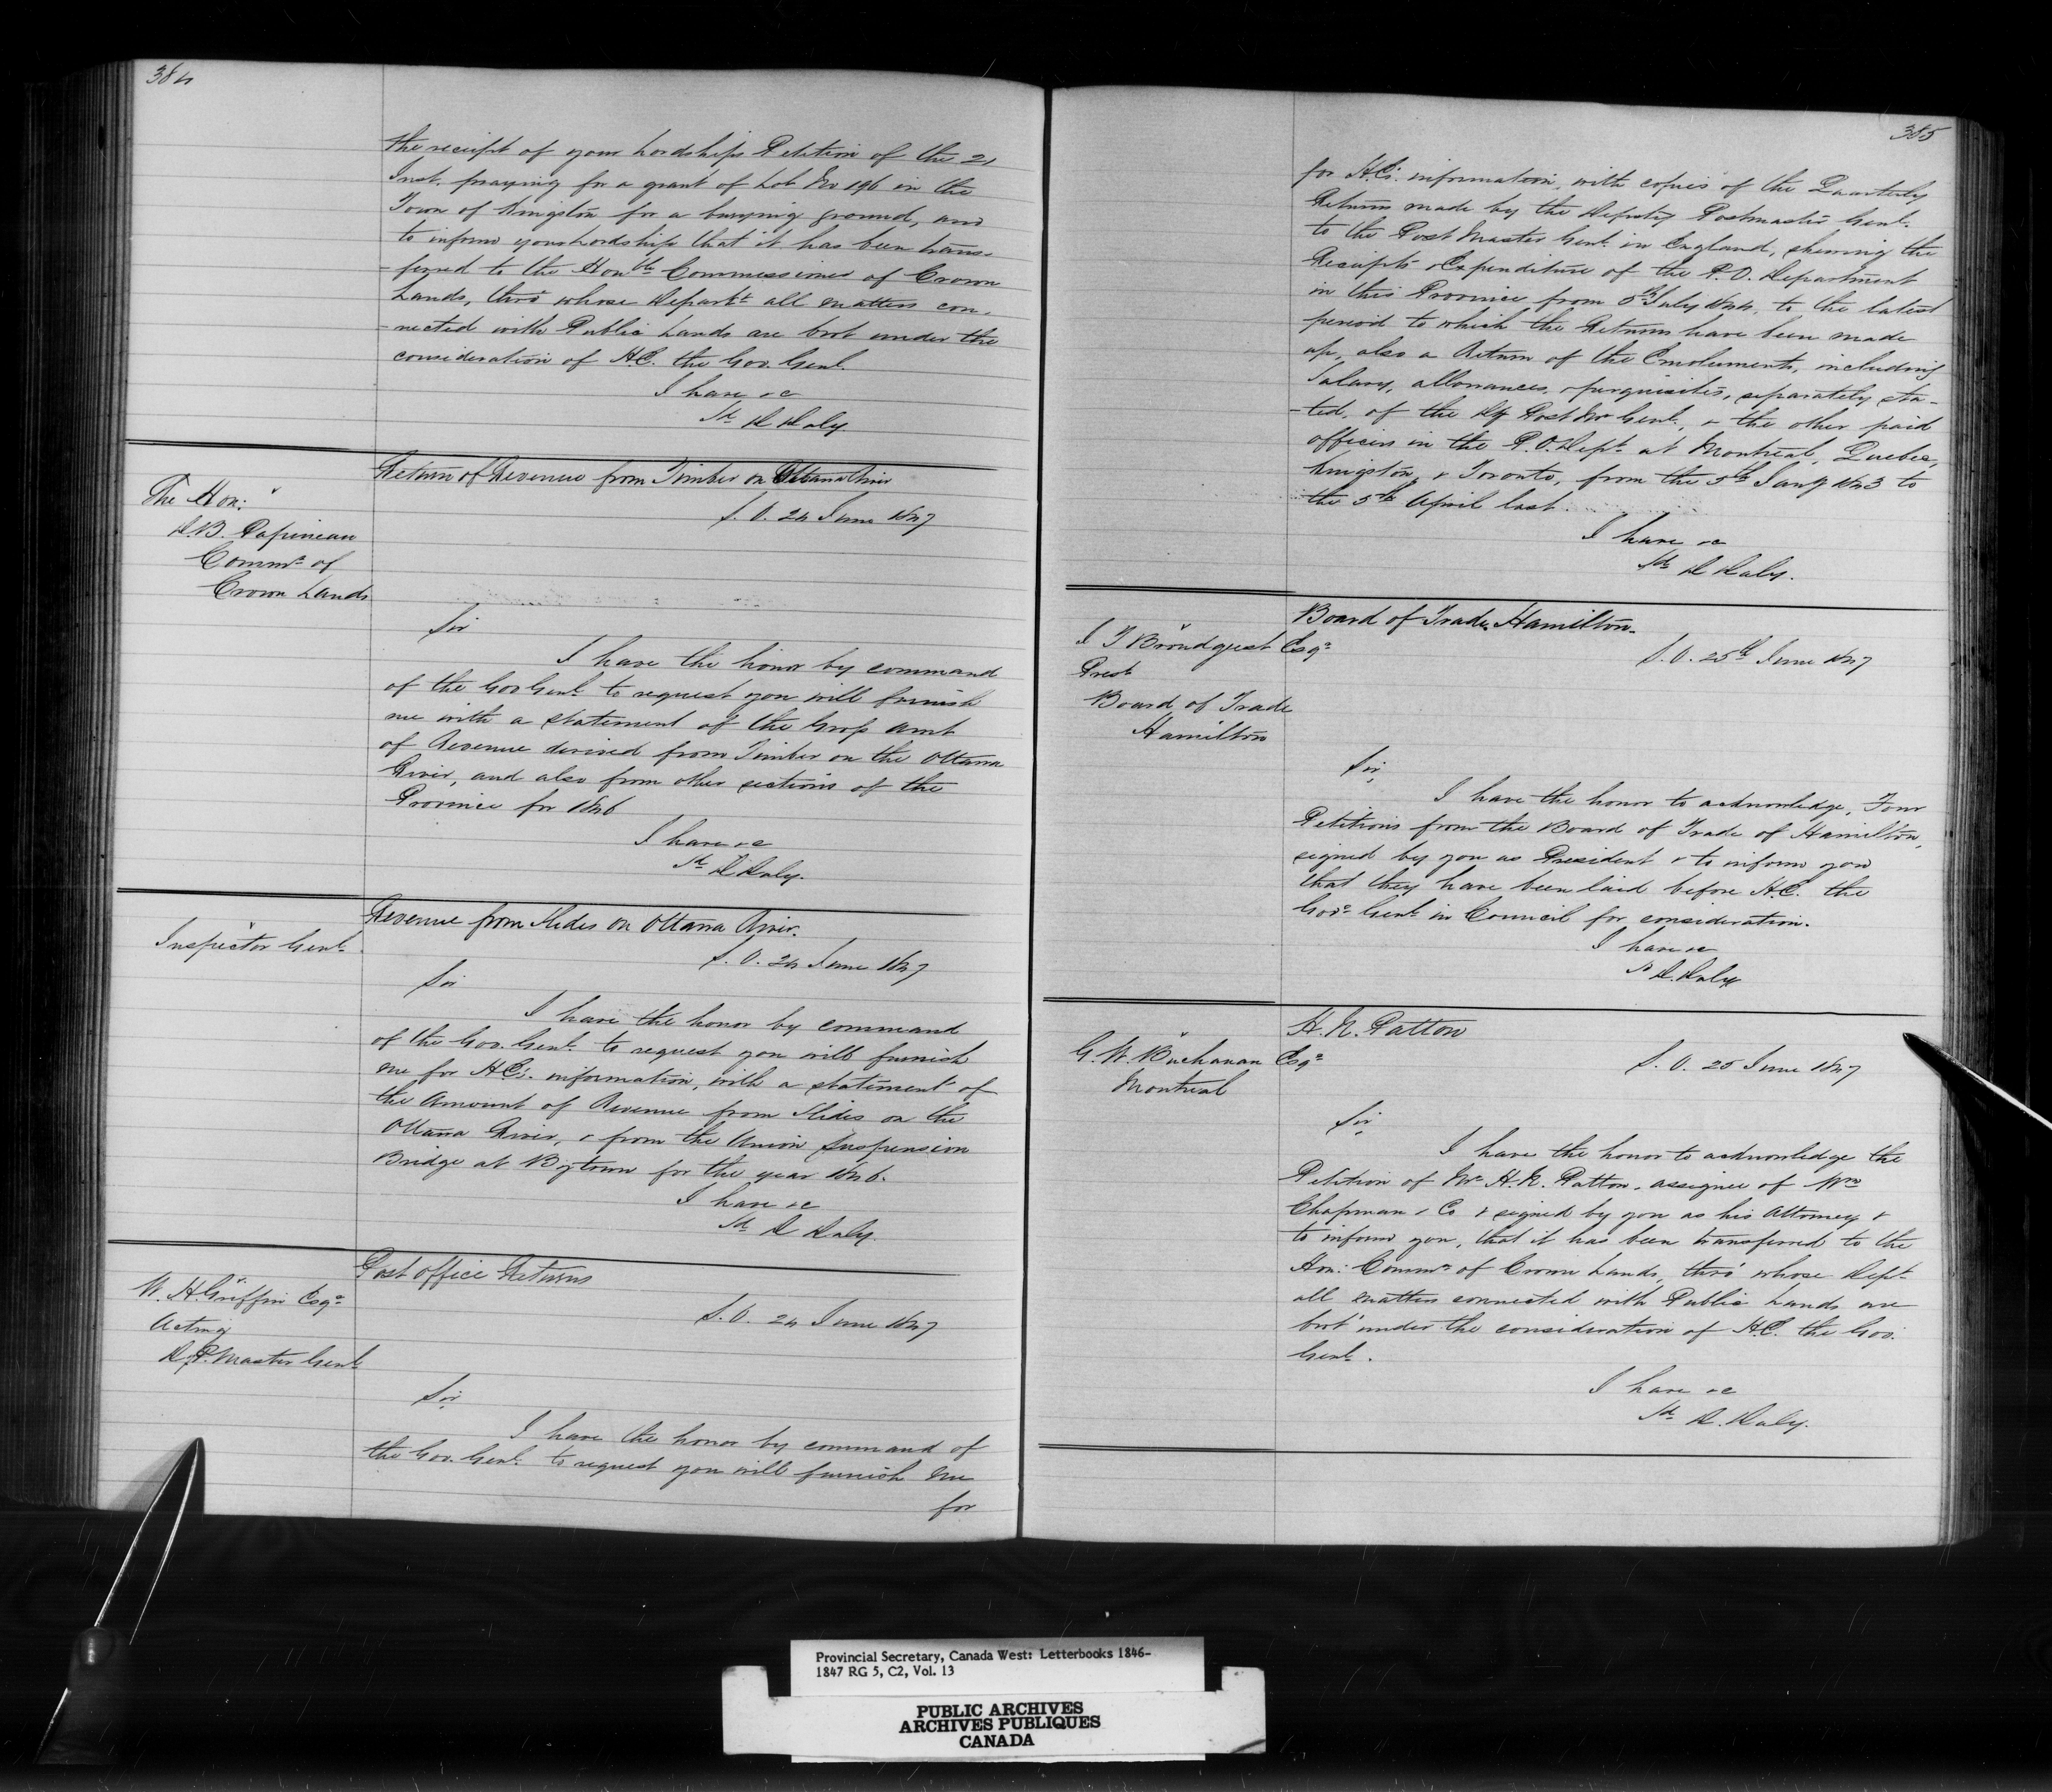 384
the receipt of your Lordships Petition of the 21
Inst. praying for a grant of Lot No 196 in the
Town of Kingston for a burying ground, and
to inform your Lordship that it has been trans-
-ferred to the Honble Commissioner of Crown
Lands, thro' whose Departt all matters con-
-nected with Public Lands are brot under the
consideration of H.E. the Gov. Genl.
I have &c
Sd D Daly.
Return of Revenue from Timber on Ottawa River
The Hon:
D.B. Papineau
Commr of
Crown Lands
S.O. 24 June 1847
Sir
I have the honor by command
of the Gov Genl to request you will furnish
me with a statement of the Gross amt
of Revenue derived from Timber on the Ottawa
River, and also from other sections of the
Province for 1846
I have &c
Sd D Daly.
Revenue from Slides on Ottawa River.
Inspector Genl
S.O. 24 June 1847
Sir
I have the honor by command
of the Gov. Genl. to request you will furnish
me for H.E's. information, with a statement of
the Amount of Revenue from Slides on the
Ottawa River, & from the Union Suspension
Bridge at Bytown for the year 1846.
I have &c
Sd D Daly.
Post office Returns
W. H. Griffin Esqr
Acting
D.P. Master Genl
S.O. 24 June 1847
Sir
I have the honor by command of
the Gov. Genl. to request you will furnish me
for
385
for H.E's. information, with copies of the Quarterly
Returns made by the Deputy Postmaster Genl.
to the Post Master Genl in England, shewing the
Receipts & Expenditure of the P.O. Department
in this Province from 5th July 1844, to the latest
period to which the Returns have been made
up, also a Return of the Emoluments, including
Salary, allowances, & perquisites, separately sta-
-ted, of the Dy Post Mr Genl., & the other paid
officers in the P.O. Dept at Montreal, Quebec,
Kingston, & Toronto, from the 5th Jany 1843 to
the 5th April last.
I have &c
Sd D Daly.
Board of Trade Hamilton.
J T Brondgeest Esqr
Prest
Board of Trade
Hamilton
S.O. 25th June 1847
Sir,
I have the honor to acknowledge, Four
Petitions from the Board of Trade of Hamilton,
signed by you as President & to inform you
that they have been laid before H.E. the
Govr Genl in Council for consideration.
I have &c
Sd D. Daly
H. N. Patton
G. W. Buchanan Esqr
Montreal
S.O. 25 June 1847
Sir
I have the honor to acknowledge the
Petition of Mr H. N. Patton, assignee of Wm
Chapman & Co & signed by you as his Attorney &
to inform you, that it has been transferred to the
Hon: Commr of Crown Lands, thro' whose Dept
all matters connected with Public Lands are
brot under the consideration of H.E. the Gov.
Genl.
I have &c
Sd D. Daly.
Provincial Secretary, Canada West: Letterbooks 1846-
1847 RG 5, C2, Vol. 13
PUBLIC ARCHIVES
ARCHIVES PUBLIQUES
CANADA